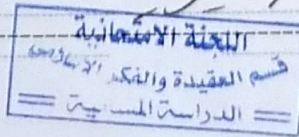 اللجنة الامتحانية
قسم العقيدة والفكر الاسلامي
الدراسة المسائية